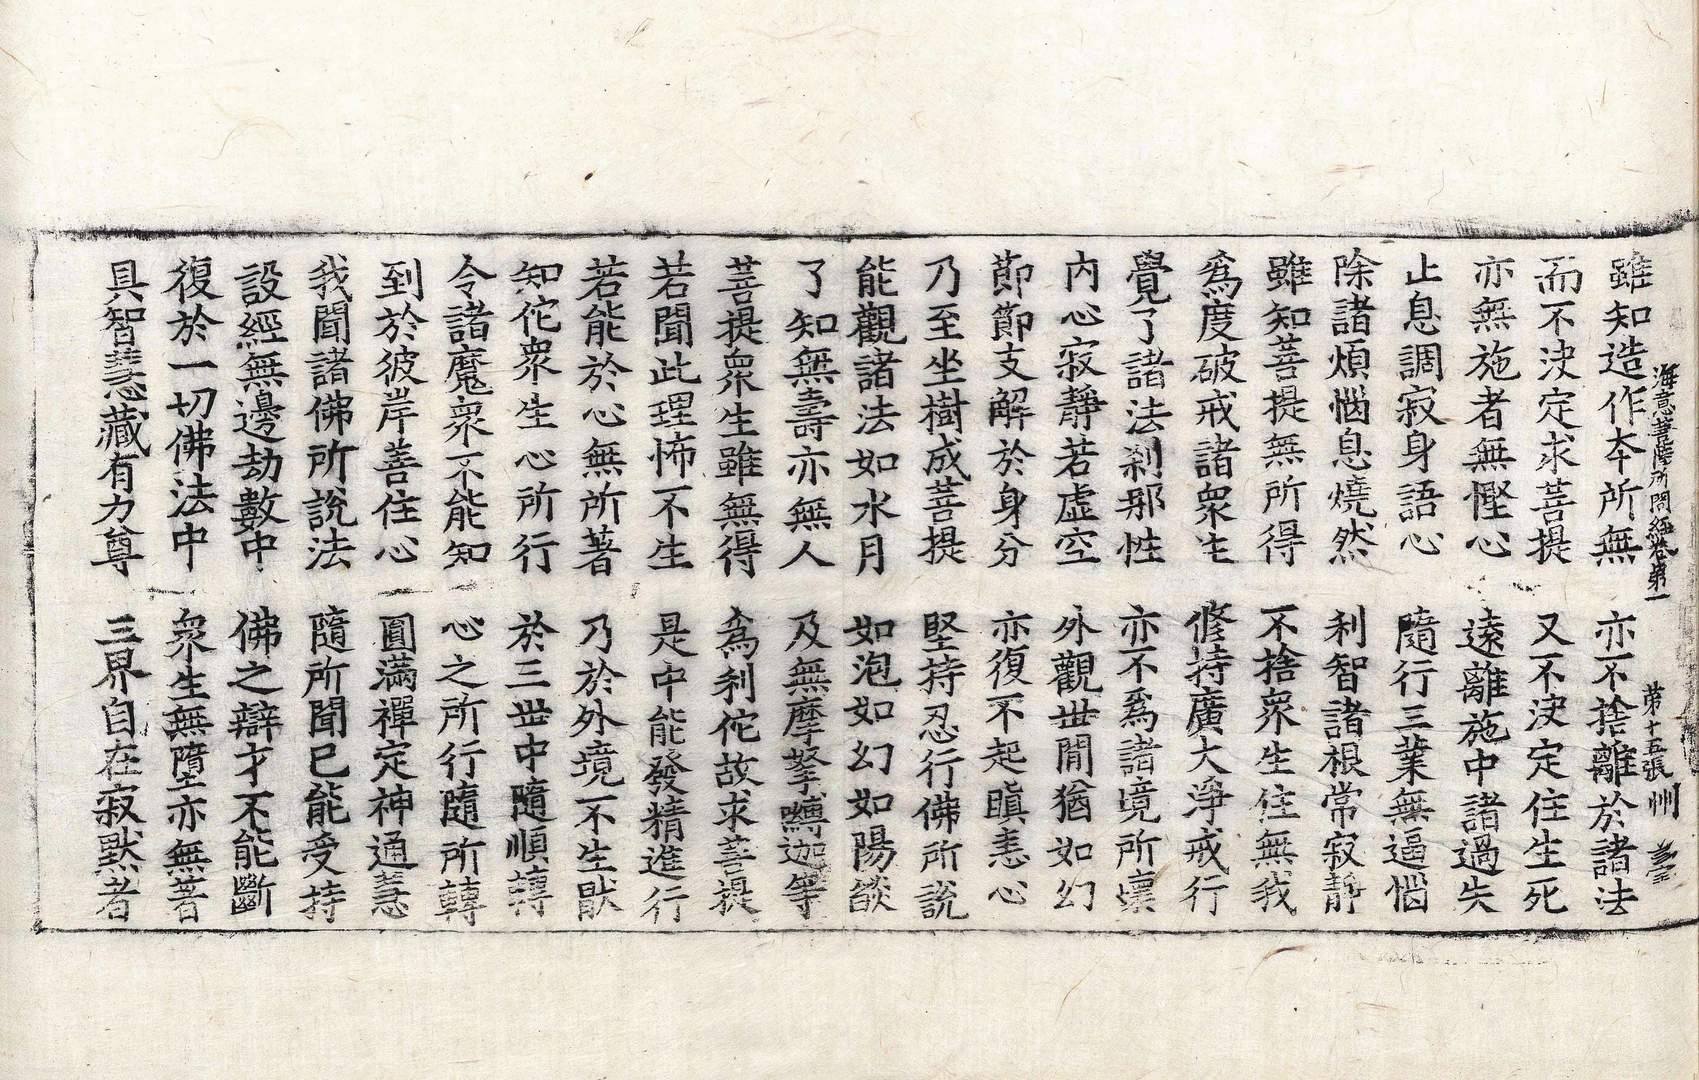 海意菩薩所問經卷第一 第十五張 州
雖知造作本所無 亦不捨離於諸法
而不決定求菩提 又不決定住生死
亦無施者無慳心 遠離施中諸過失
止息調寂身語心 隨行三業無逼惱
除諸煩惱息燒然 利智諸根常寂靜
雖知菩提無所得 不捨衆生住無我
爲度破戒諸衆生 修持廣大淨戒行
覺了諸法刹那性 亦不爲諸境所壞
內心寂靜若虛空 外觀世間猶如幻
節節支解於身分 亦復不起瞋恚心
乃至坐樹成菩提 堅持忍行佛所說
能觀諸法如水月 如泡如幻如陽燄
了知無壽亦無人 及無摩拏嚩迦等
菩提衆生雖無得 爲利佗故求菩提
若聞此理怖不生 是中能發精進行
若能於心無所著 乃於外境不生猒
知佗衆生心所行 於三世中隨順轉
令諸魔衆不能知 心之所行隨所轉
到於彼岸善住心 圓滿禪定神通慧
我聞諸佛所說法 隨所聞已能受持
設經無邊劫數中 佛之辯才不能斷
復於一切佛法中 衆生無墮亦無著
具智慧藏有力尊 三界自在寂默者